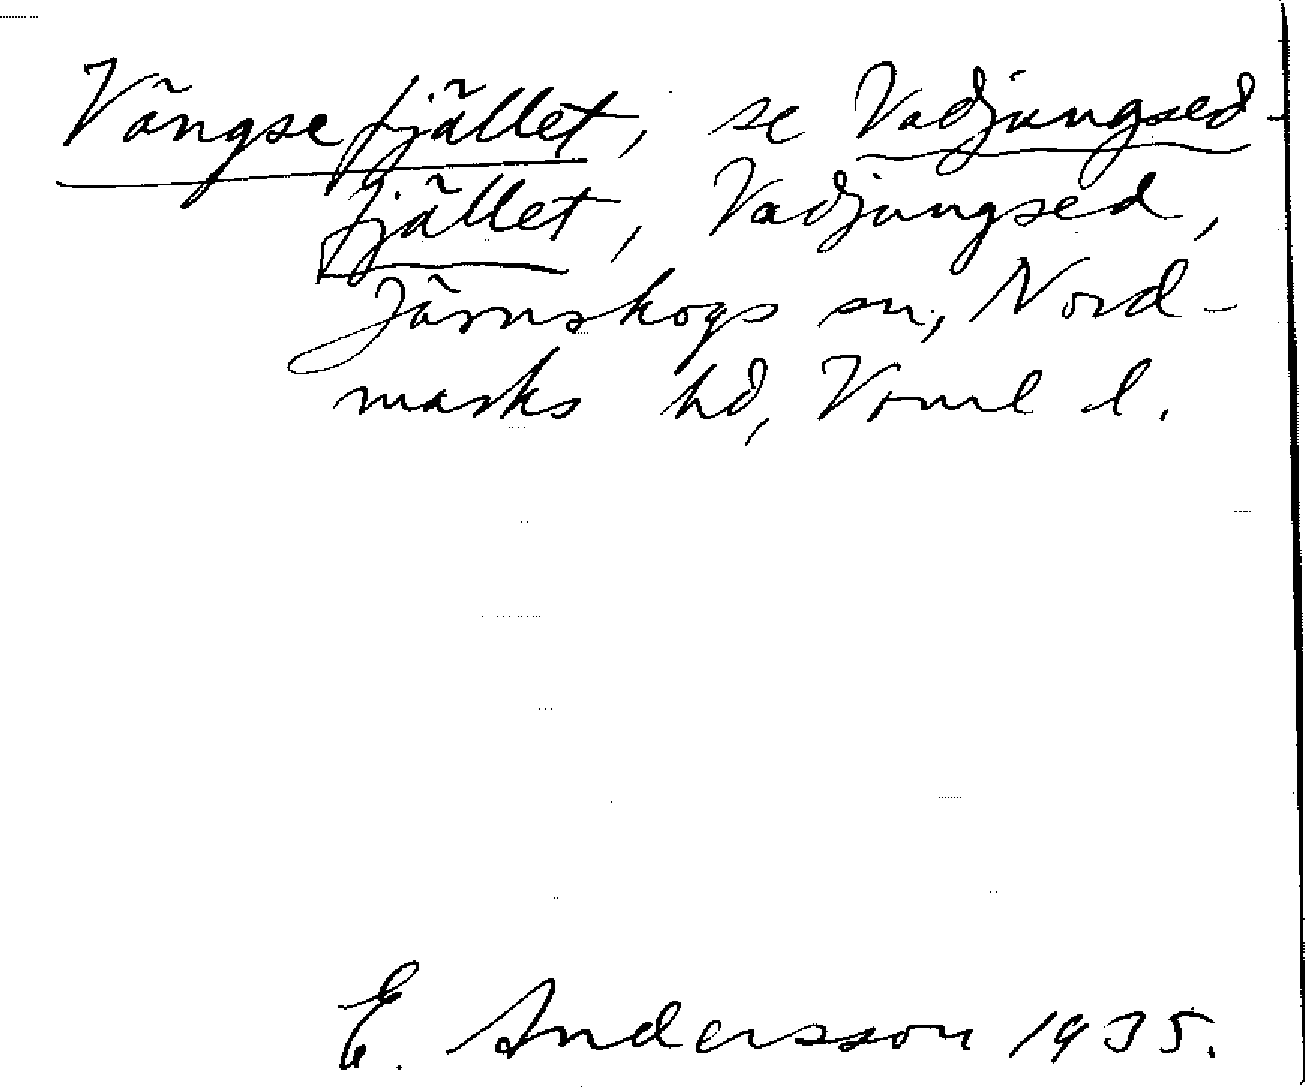 Vängsefjället, se Vadjungsed-
fjället, Vadjungsed,
Järnskogs sn, Nord-
marks hd, Vrml l.
E. Andersson 1935.